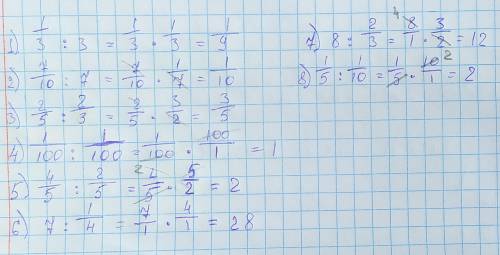 1) 1/3 : 3 = 1/3 · 1/3 = 1/9
2) 7/10 : 7 = 7/10 · 1/7 = 1/10
3) 2/5 : 2/3 = 2/5 · 3/2 = 3/5
4) 1/100 : 1/100 = 1/100 · 100/1 = 1
5) 4/5 : 2/5 = 2 4/5 · 5/2 = 2
6) 7 : 1/4 = 7/1 · 4/1 = 28
7) 8 : 2/3 = 4 8/1 · 3/2 = 12
8) 1/5 : 1/10 = 1/5 · 10/1 2 = 2